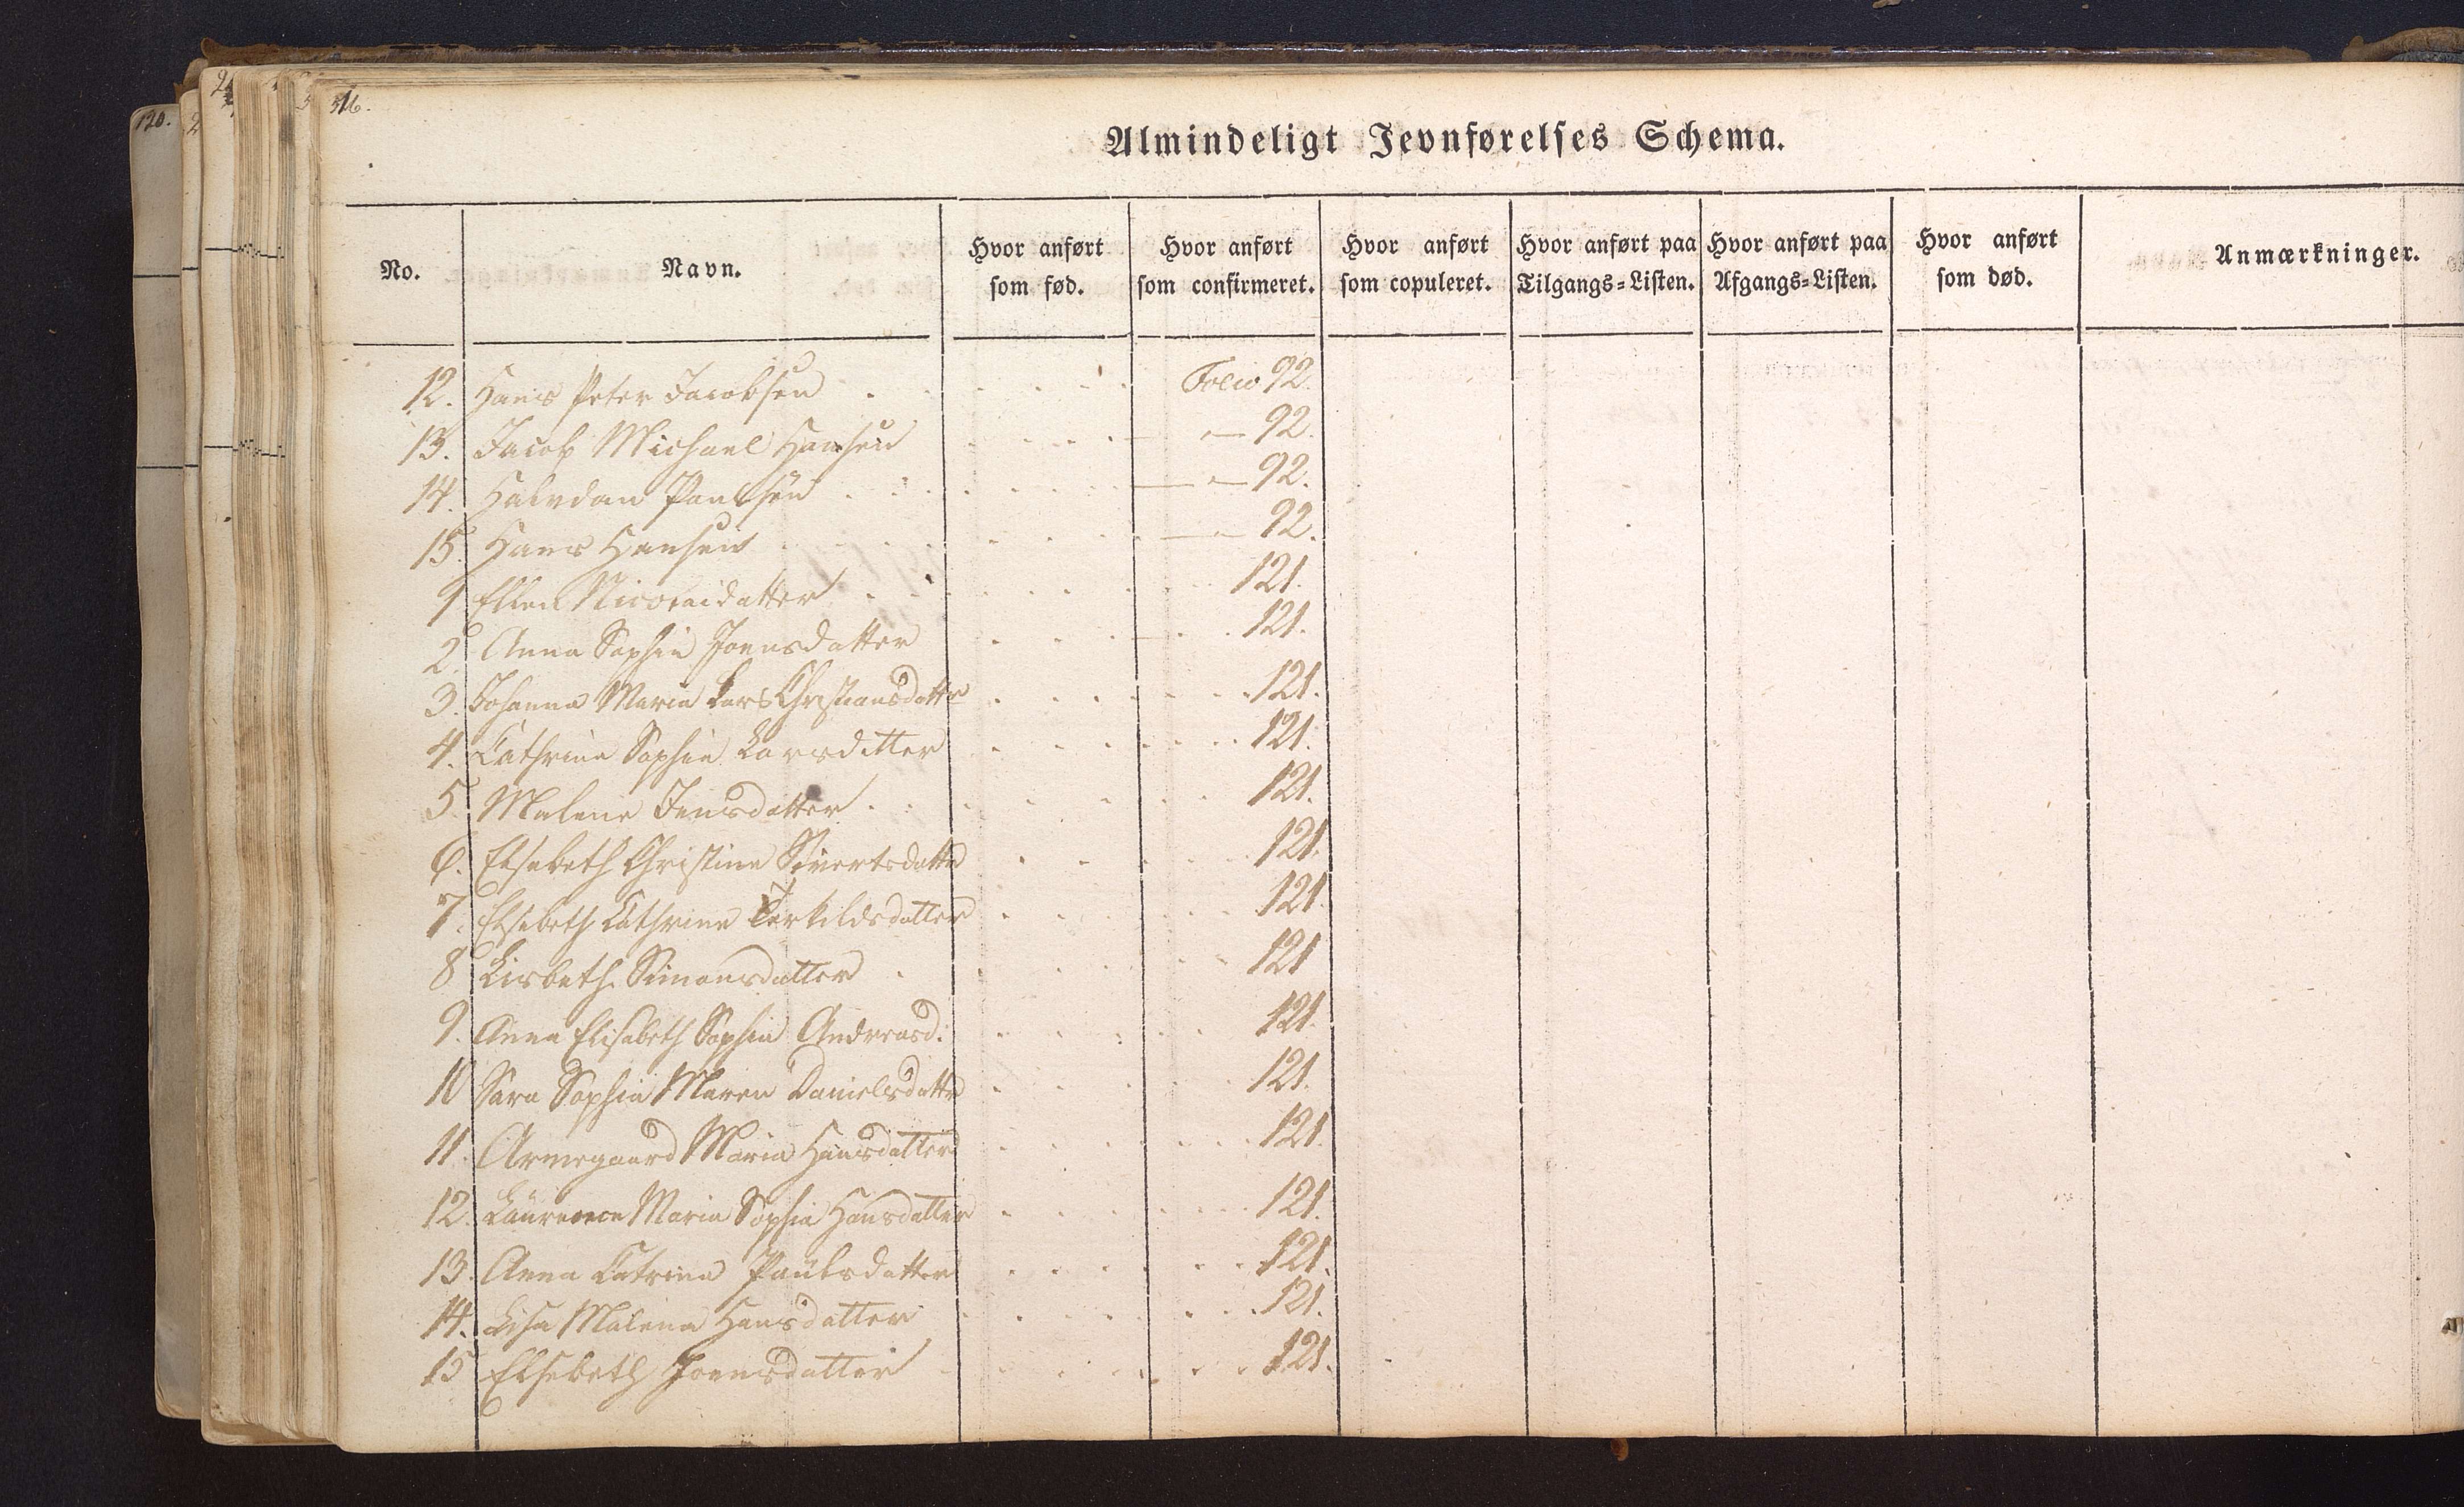 120.
516.
Almindeligt Jevnførelses Schema.
No. Navn. Hvor anført som fød. Hvor anført som confirmeret. Hvor anført som copuleret. Hvor anført paa Tilgangs-Listen. Hvor anført paa Afgangs-Listen. Hvor anført som død. Anmærkninger.
12. Hans Peter Jacobsen . . . . . Folio 92.
13. Jacob Michael Hansen . . . . — 92.
14. Halvdan Paulsen . . . . . — 92.
15. Hans Hansen . . . . . — 92.
1 Ellen Nicolaidatter . . . . . 121.
2. Anna Sophia Joensdatter . . . . . 121.
3. Johanna Maria Lars Christiansdatter . . . . . 121.
4. Cathrine Sophie Larsdatter . . . . . 121.
5. Malene Jensdatter . . . . . 121.
6. Elsebeth Christine Sivertsdatter . . . . . 121.
7. Elsebeth Cathrine Terkildsdatter . . . . . 121.
8 Lisbeth Simonsdatter . . . . . 121
9. Anna Elisabeth Sophia Andreasd: . . . . . 121.
10 Sara Sophia Maren Danielsdatter . . . . . 121.
11. Armegaard Maria Hansdatter . . . . . 121.
12. Maria Sophia Hansdatter . . . . . 121.
13. Anna Catrina Paulsdatter . . . . . 121.
14. Lisa Malena Hansdatter . . . . . 121.
15 Elsebeth Joensdatter . . . . . 121.